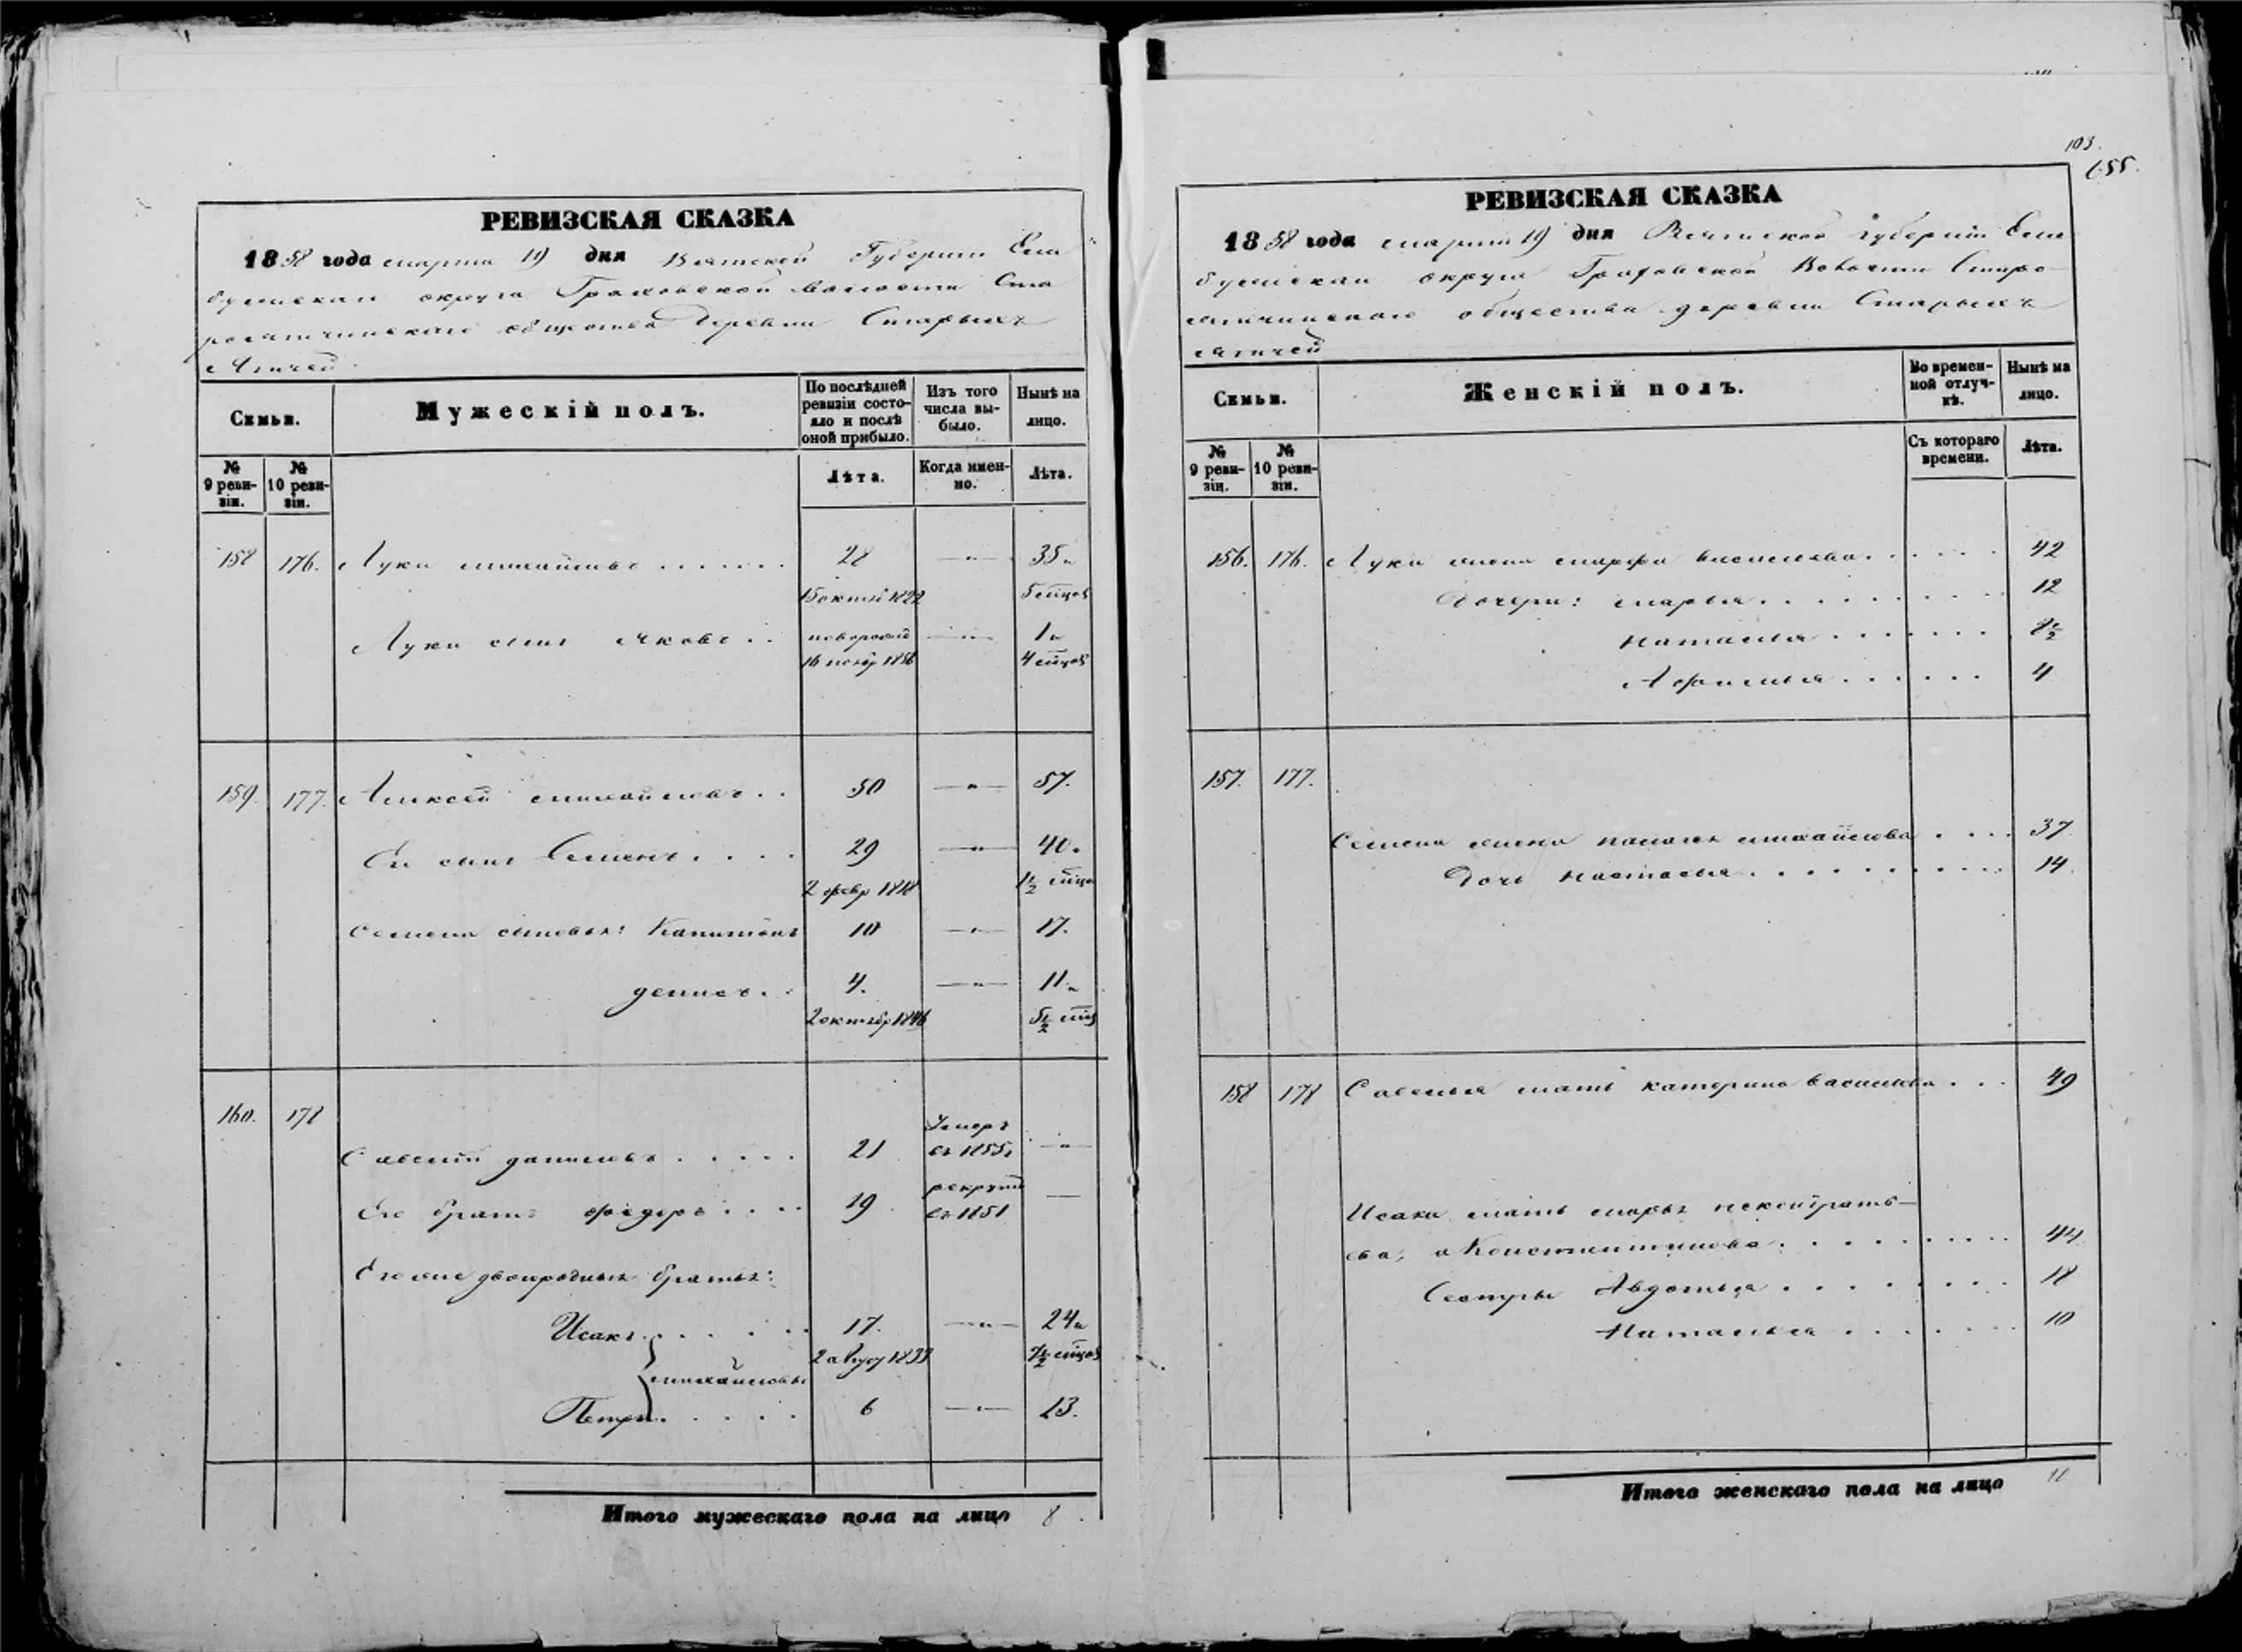 РЕВИЗСКАЯ СКАЗКА
1858 года марта 19 дня Вятской Губернии Ела
бужскаго округа Граховской волости Ста
роятчинскаго общества деревни Старыхъ
Ятчей
Семьи.
Мужескій полъ.
По послѣдней ревизіи состояло и послѣ оной прибыло.
Изъ того числа выбыло.
Нынѣ на лицо.
№ 9 ревизіи.
№ 10 ревизіи.
Лѣта.
Когда именно.
Лѣта.
158 176. Лука михайловъ . . . . . . . 28 —"— 35 и
15 октяб 1822 5 мцов
Луки сынъ Яковъ . . новорожд —"— 1 и
16 нояб 1856 4 мцов
159. 177. Алексей михайловъ . . 50 —"— 57.
Его сынъ Семенъ . . . . 29 —"— 40 и
2 февр 1818 1½ мца
Семена сыновья: Капитонъ 10 —"— 17.
денисъ . . 4. —"— 11 и
2 октябр 1846 5½ мцв
160. 178
Умеръ
Савелий даниловъ . . . . . 21 въ 1855г —"—
рекрутъ
Его братъ федоръ . . . . 19 въ 1851 —
Его же двоюродныя братья:
Исакъ . . . . . . 17. —"— 24 и
2 август 1833 7½ мцов
михайловы
Петръ . . . . . 6 —"— 13.
Итого мужескаго пола на лицо 8.
103.
655.
РЕВИЗСКАЯ СКАЗКА
1858 года марта 19 дня Вятской губерніи Ела
бужскаго округа Граховской Волости Старо
ятчинскаго общества деревни Старыхъ
Ятчей
Семьи.
Женскій полъ.
Во временной отлучкѣ.
Нынѣ на лицо.
№ 9 ревизіи.
№ 10 ревизіи.
Съ котораго времени.
Лѣта.
156. 176. Луки жена марфа васильева . . . . . . 42
Дочери: марья . . . . . . . . . 12
Наталья . . . . . . . 8½
Афимья . . . . . . 4
157. 177.
Семена жена палагея михайлова . . . . 37
Дочь Настасья . . . . . . . . . . 14.
158 178 Савелья мать катерина васильева . . . 49
Исака мать марья
ева, а Константинова . . . . . . . . . . 44
Сестры Авдотья . . . . . . . . 18
Наталья . . . . . . . 10
Итого женскаго пола на лицо 10